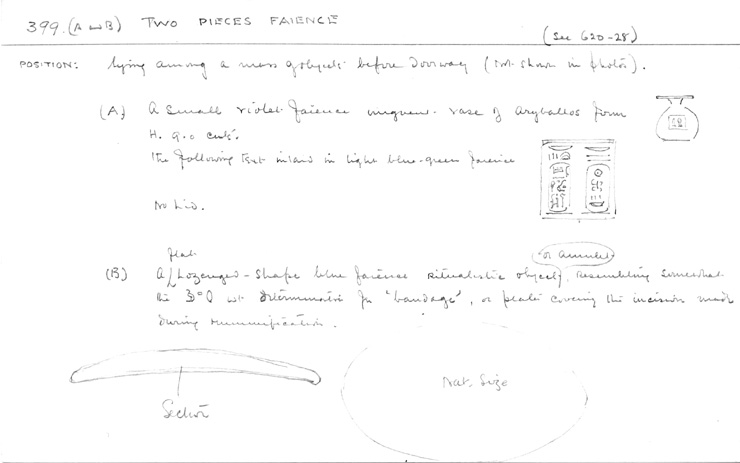 399. (A & B) TWO PIECES FAIENCE
(See 620-28)
POSITION: lying among a mass of objects before Doorway (not shown in photos).
(A) A small violet faience unguent-vase of aryballos form
H. 9.0 cents.
The following text inlaid in light blue-green faience
No Lid.
flat
or amulet
(B) A Lozenge-shape blue faience ritualistic object, resembling somewhat
the determinative for 'bandage', or plate covering the incision made
during mummification.
Section
Nat. Size